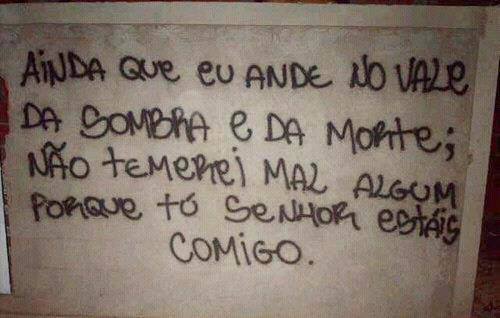 AiNDA QUE EU ANDE NO VALE
DA SOMBRA E DA MORTE;
NÃO TEMEREI MAL ALGUM
PORQUE TÓ SENHOR ESTÁIS
COMIGO.